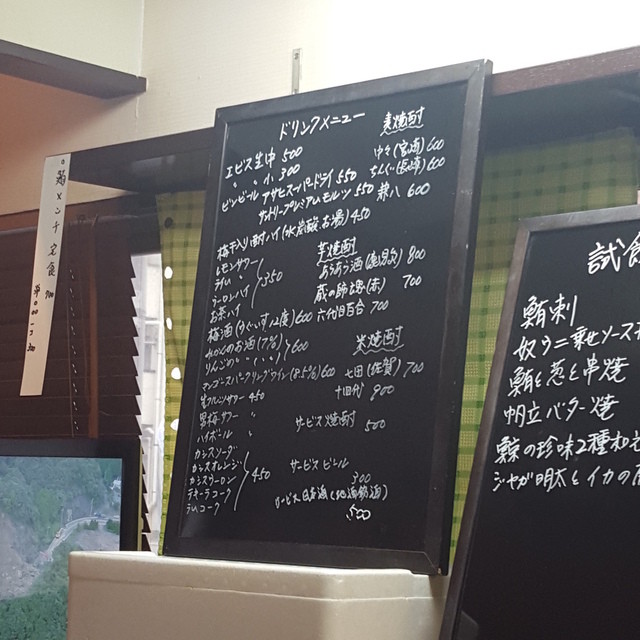 ドリンクメニュー
エビス生中 500
〃 〃 小 300
ビンビール アサヒスーパードライ 550
サントリープレミアムモルツ 550
梅干入り酎ハイ(水 炭酸 お湯) 450
レモンサワー
ライム 〃
ウーロンハイ
お茶ハイ
350
梅酒(うぐいす12度) 600
みかんのお酒(7%)
りんごの 〃 (〃)
600
マンゴースパークリングワイン(8.5%) 600
生フルーツサワー 450
男梅サワー 〃
ハイボール 〃
カシスソーダ
カシスオレンジ
カシスウーロン
テキーラコーク
ラムコーク
450
麦焼酎
中々(宮崎) 600
ちんぐ(長崎) 600
兼八 600
芋焼酎
あらあら酒(鹿児島) 800
蔵の師魂(赤) 700
六代目百合 700
米焼酎
七田(佐賀) 700
十四代 900
サービス焼酎 500
サービスビール 300
サービス日本酒(地酒銘酒)
メンチ定食 700
試食
鮪刺
奴うに乗せソース
鮪と葱と串焼
帆立バター焼
鯨の珍味2種和え
ジャガ明太とイカの